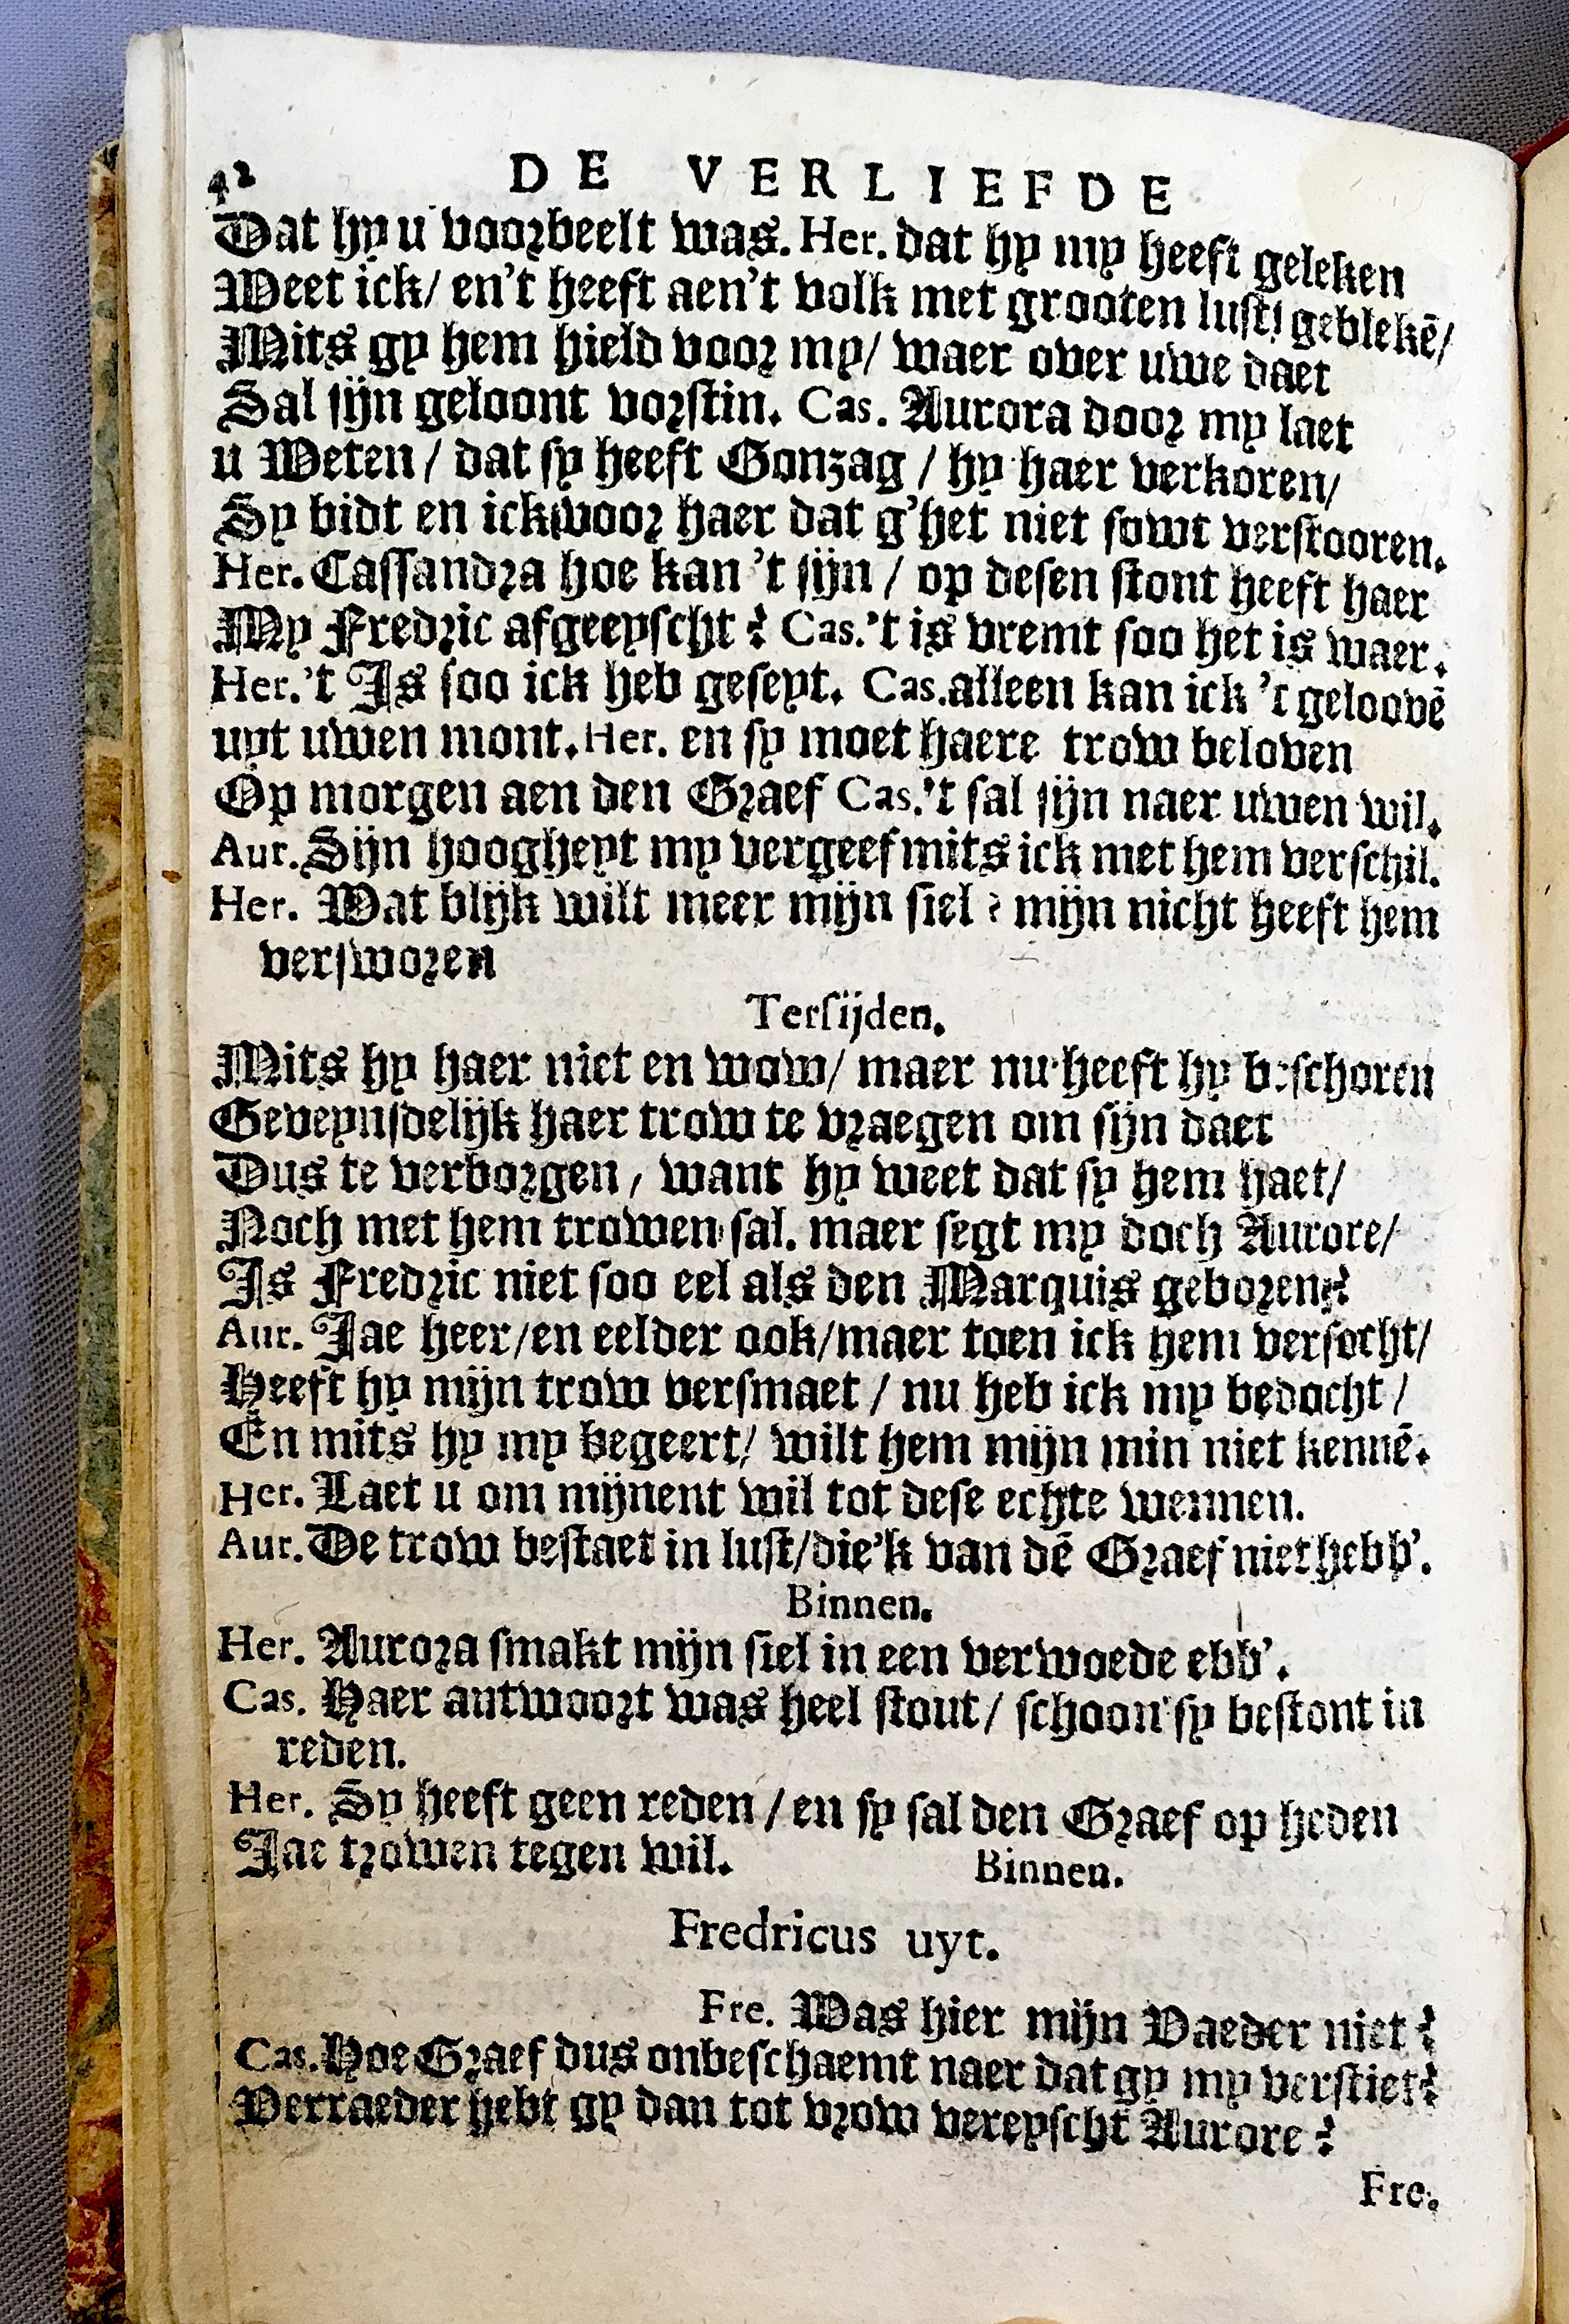 42 DE VERLIEFDE
Dat hy u voorbeelt was. Her. dat hy my heeft geleken
Weet ick/ en't heeft aen't volk met grooten lust! geblekē/
Mits gy hem hield voor my/ waer over uwe daet
Sal sijn geloont vorstin. Cas. Aurora door my laet
u Weten / dat sy heeft Gonzag / hy haer verkoren/
Sy bidt en ick voor haer dat g'het niet sowt verstooren.
Her. Cassandra hoe kan 't sijn / op desen stont heeft haer
My Fredric afgeeyscht? Cas. 't is vremt soo het is waer.
Her. 't Is soo ick heb geseyt. Cas. alleen kan ick 't geloovē
uyt uwen mont. Her. en sy moet haere trow beloven
Op morgen aen den Graef Cas. 't sal sijn naer uwen wil.
Aur. Sijn hoogheyt my vergeef mits ick met hem verschil.
Her. Wat blijk wilt meer mijn siel? mijn nicht heeft hem
versworen
Tersijden.
Mits hy haer niet en wow/ maer nu heeft hy beschoren
Geveynsdelijk haer trow te vraegen om sijn daet
Dus te verborgen, want hy weet dat sy hem haet/
Noch met hem trowen sal. maer segt my doch Aurore/
Is Fredric niet soo eel als den Marquis geboren?
Aur. Jae heer/en eelder ook/maer toen ick hem versocht/
Heeft hy mijn trow versmaet / nu heb ick my bedocht /
En mits hy my begeert/ wilt hem mijn min niet kennē.
Her. Laet u om mijnent wil tot dese echte wennen.
Aur. De trow bestaet in lust/die'k van dē Graef niet hebb'.
Binnen.
Her. Aurora smakt mijn siel in een verwoede ebb'.
Cas. Haer antwoort was heel stout/ schoon sy bestont in
reden.
Her. Sy heeft geen reden / en sy sal den Graef op heden
Jae trowen tegen wil. Binnen.
Fredricus uyt.
Fre. Was hier mijn Vaeder niet?
Cas. Hoe Graef dus onbeschaemt naer dat gy my verstiet?
Verraeder hebt gy dan tot vrow vereyscht Aurore?
Fre.